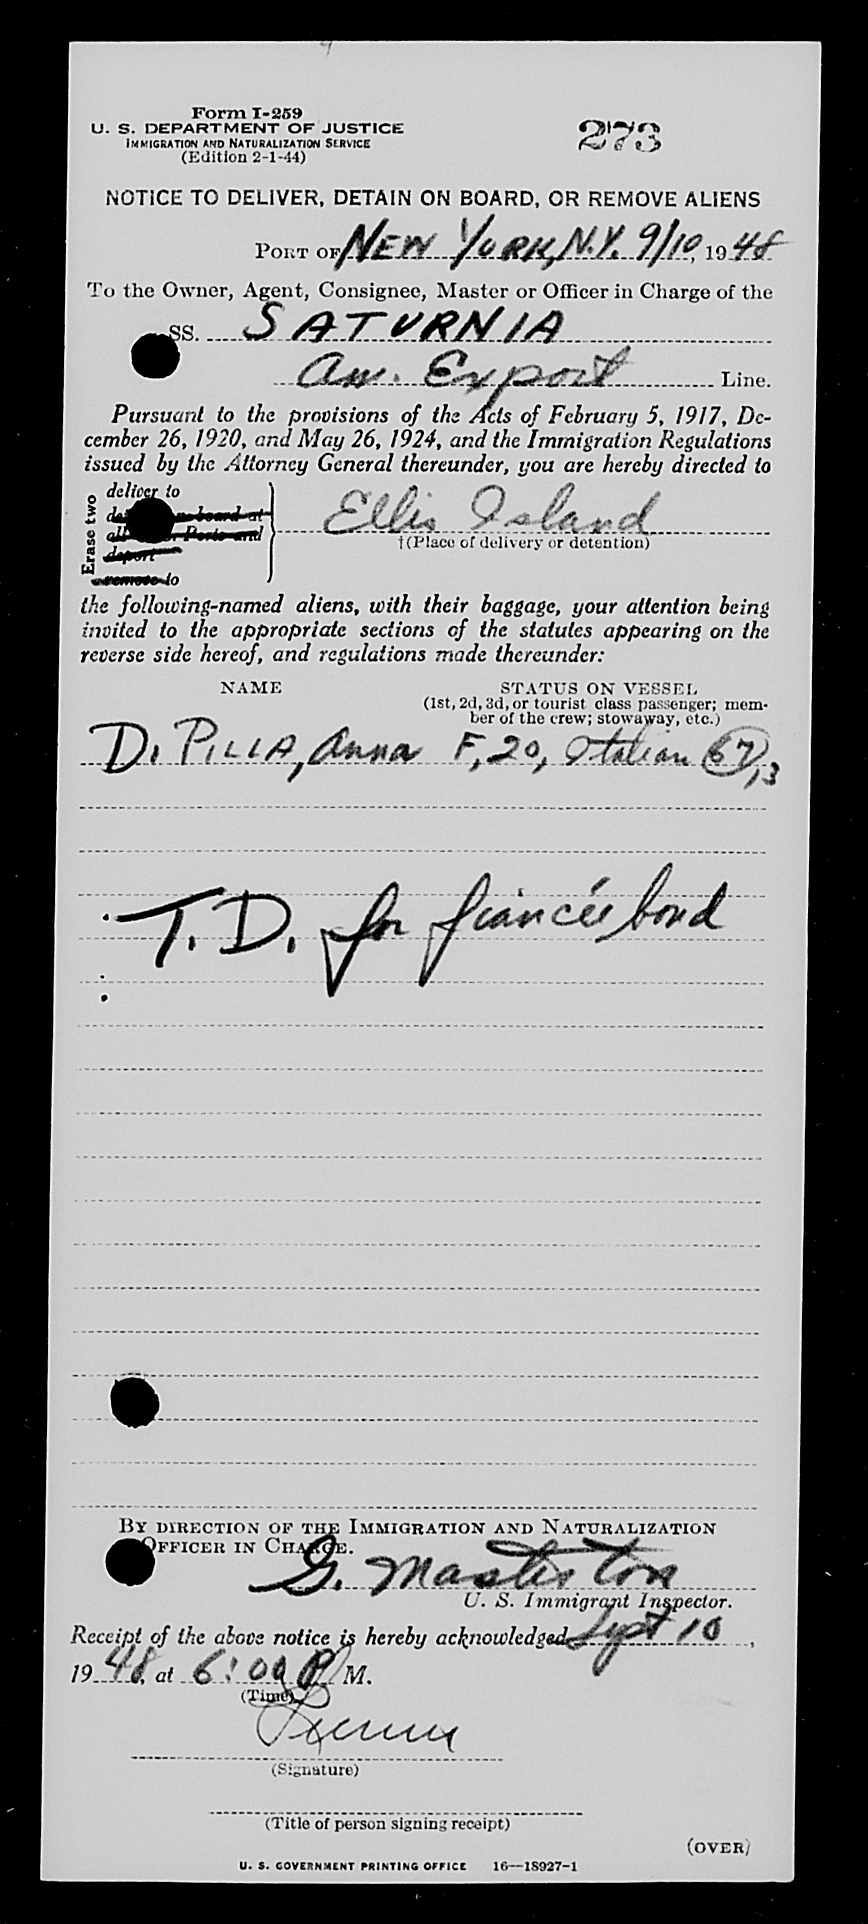 Form I-259
U. S. DEPARTMENT OF JUSTICE
IMMIGRATION AND NATURALIZATION SERVICE
(Edition 2-1-44)
273
NOTICE TO DELIVER, DETAIN ON BOARD, OR REMOVE ALIENS
PORT OF NEW YORK, N.Y. 9/10, 1948
To the Owner, Agent, Consignee, Master or Officer in Charge of the
SS. SATURNIA
Am. Export Line.
Pursuant to the provisions of the Acts of February 5, 1917, De-
cember 26, 1920, and May 26, 1924, and the Immigration Regulations
issued by the Attorney General thereunder, you are hereby directed to
Erase two
deliver to
on board at
Ports and
deport
remove to
Ellis Island
†(Place of delivery or detention)
the following-named aliens, with their baggage, your attention being
invited to the appropriate sections of the statutes appearing on the
reverse side hereof, and regulations made thereunder:
NAME STATUS ON VESSEL
(1st, 2d, 3d, or tourist class passenger; mem-
ber of the crew; stowaway, etc.)
Di PILLA, Anna F, 20, Italian 67, 13
T.D. for fiancée bond
BY DIRECTION OF THE IMMIGRATION AND NATURALIZATION
OFFICER IN CHARGE.
G. Masterton
U. S. Immigrant Inspector.
Receipt of the above notice is hereby acknowledged Sept 10,
1948, at 6:00 P M.
(Time)
(Signature)
(Title of person signing receipt)
(OVER)
U. S. GOVERNMENT PRINTING OFFICE 16—18927-1